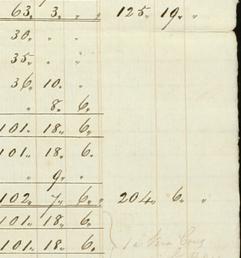 63,, 3,, ,, ,, 125,, 19,, ,,
30,, ,, ,,
35,, ,, ,,
36,, 10,, ,,
,, 8,, 6,,
101,, 18,, 6,,
101,, 18,, 6,,
,, 9,, ,,
102,, 7,, 6,, 204,, 6,, ,,
101,, 18,, 6,,
101,, 18,, 6,,